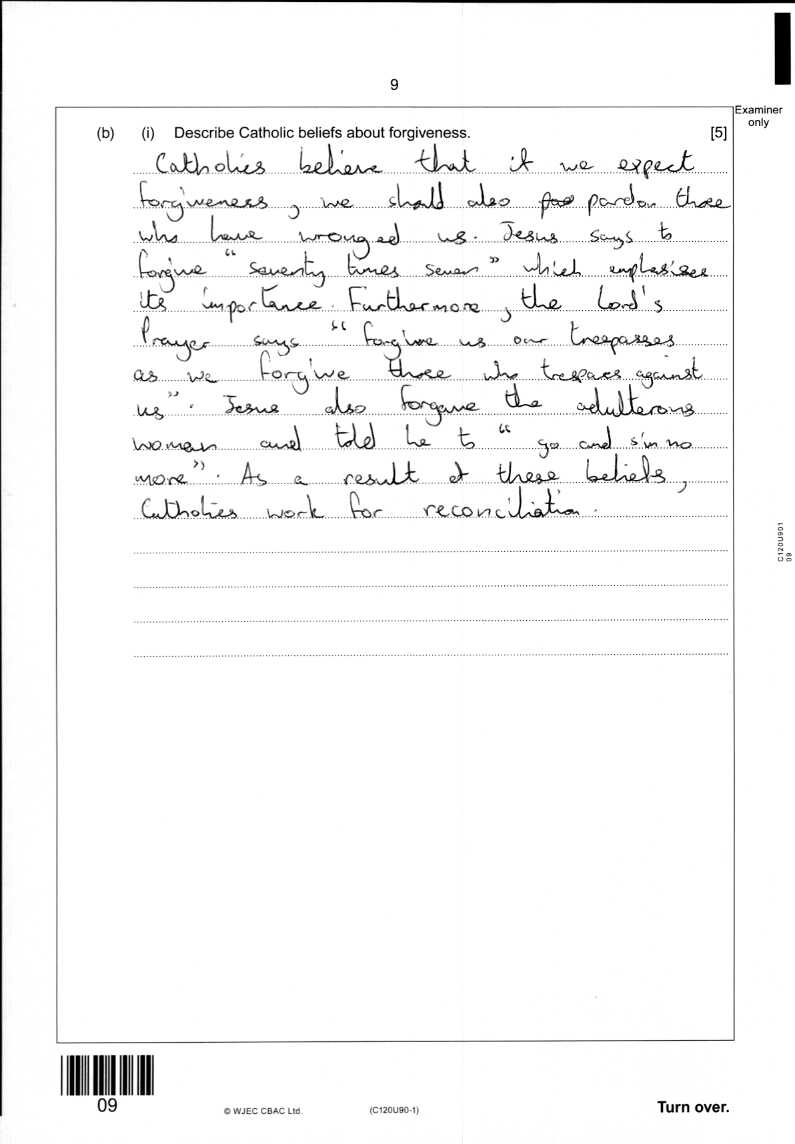 9
Examiner
only
(b) (i) Describe Catholic beliefs about forgiveness. [5]
Catholics believe that if we expect
forgiveness, we should also pardon those
who have wronged us. Jesus says to
forgive "seventy times seven" which emphasises
its importance. Furthermore, the Lord's
Prayer says "forgive us our trespasses
as we forgive those who trespass against
us". Jesus also forgave the adulterous
woman and told he to "go and sin no
more". As a result of these beliefs,
Catholics work for reconciliation.
C120U901
09
09
© WJEC CBAC Ltd.
(C120U90-1)
Turn over.